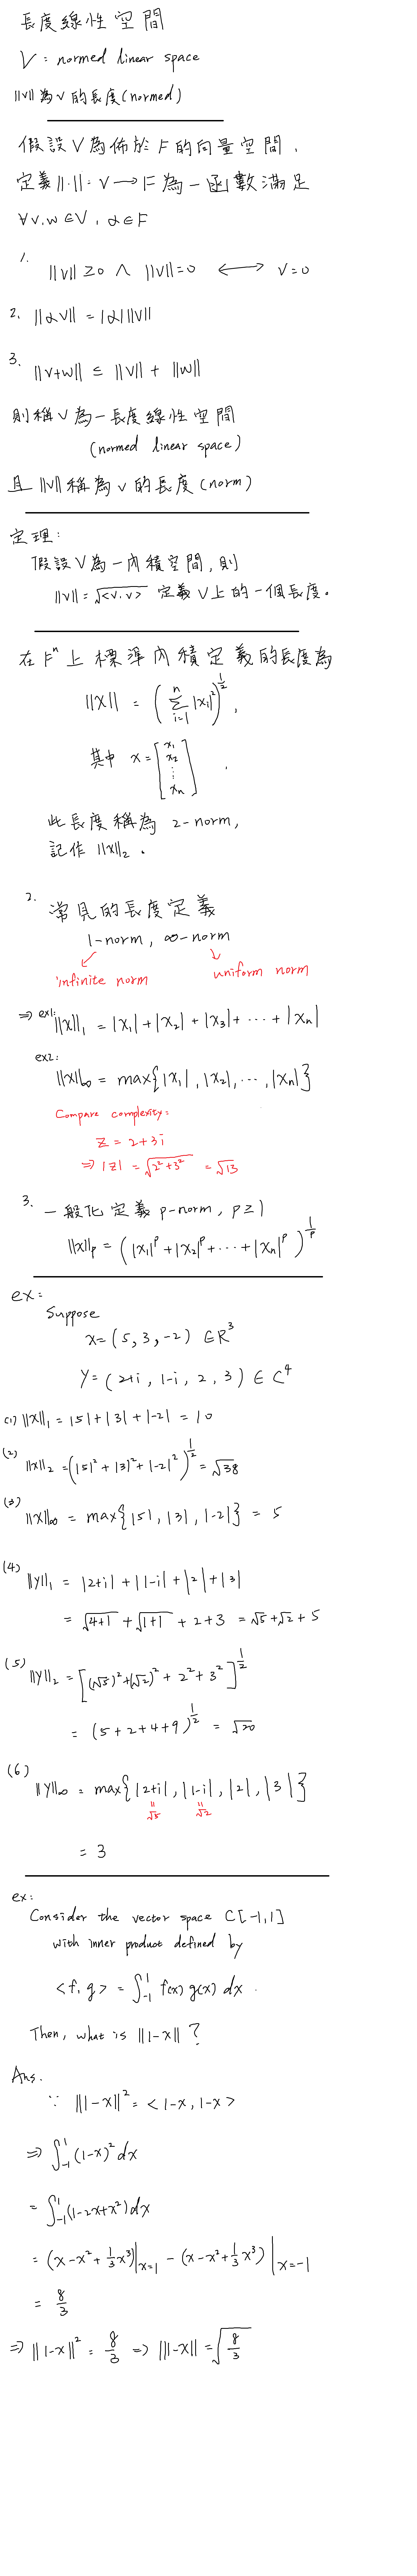 長度線性空間
V : normed linear space
||v|| 為 v 的長度(normed)
假設 V 為佈於 F 的向量空間,
定義 ||·|| : V → F 為一函數滿足
∀v,w ∈ V, α ∈ F
1. ||v|| ≥ 0 ∧ ||v|| = 0 ⟷ v = 0
2. ||αv|| = |α| ||v||
3. ||v+w|| ≤ ||v|| + ||w||
則稱 V 為一長度線性空間
(normed linear space)
且 ||v|| 稱為 v 的長度(norm)
定理:
假設 V 為一內積空間, 則
||v|| = √<v.v> 定義 V 上的一個長度。
在 Fⁿ 上標準內積定義的長度為
||X|| = (∑_{i=1}^{n} |xᵢ|²)^{1/2},
其中 x = [x₁ x₂ ⋮ xₙ].
此長度稱為 2-norm,
記作 ||x||₂。
2. 常見的長度定義
1-norm, ∞-norm
infinite norm uniform norm
⇒ ex1: ||x||₁ = |x₁| + |x₂| + |x₃| + ⋯ + |xₙ|
ex2:
||x||∞ = max{|x₁|, |x₂|, ⋯, |xₙ|}
Compare complexity:
Z = 2+3i
⇒ |z| = √(2²+3²) = √13
3. 一般化定義 p-norm, p ≥ 1
||x||p = (|x₁|^p + |x₂|^p + ⋯ + |xₙ|^p)^{1/p}
ex:
Suppose
x = (5, 3, -2) ∈ R³
Y = (2+i, 1-i, 2, 3) ∈ C⁴
(1) ||x||₁ = |5| + |3| + |-2| = 10
(2) ||x||₂ = (|5|² + |3|² + |-2|²)^{1/2} = √38
(3) ||x||∞ = max{|5|, |3|, |-2|} = 5
(4) ||y||₁ = |2+i| + |1-i| + |2| + |3|
= √(4+1) + √(1+1) + 2 + 3 = √5 + √2 + 5
(5) ||y||₂ = [(√5)² + (√2)² + 2² + 3²]^{1/2}
= (5 + 2 + 4 + 9)^{1/2} = √20
(6) ||y||∞ = max{|2+i|, |1-i|, |2|, |3|}
= √5 = √2
= 3
ex:
Consider the vector space C[-1,1]
with inner product defined by
<f, g> = ∫_{-1}^{1} f(x) g(x) dx.
Then, what is ||1-x|| ?
Ans.
∵ ||1-x||² = <1-x, 1-x>
⇒ ∫_{-1}^{1} (1-x)² dx
= ∫_{-1}^{1} (1-2x+x²) dx
= (x - x² + 1/3 x³)|_{x=1} - (x - x² + 1/3 x³)|_{x=-1}
= 8/3
⇒ ||1-x||² = 8/3 ⇒ ||1-x|| = √(8/3)